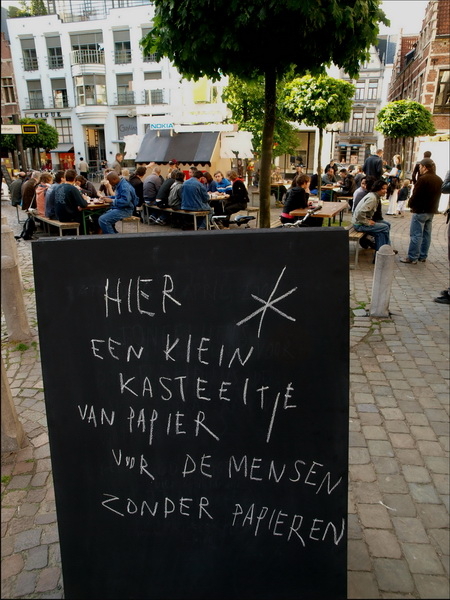 NOKIA
HIER *
EEN KLEIN
KASTEELTJE
VAN PAPIER
VOOR DE MENSEN
ZONDER PAPIEREN